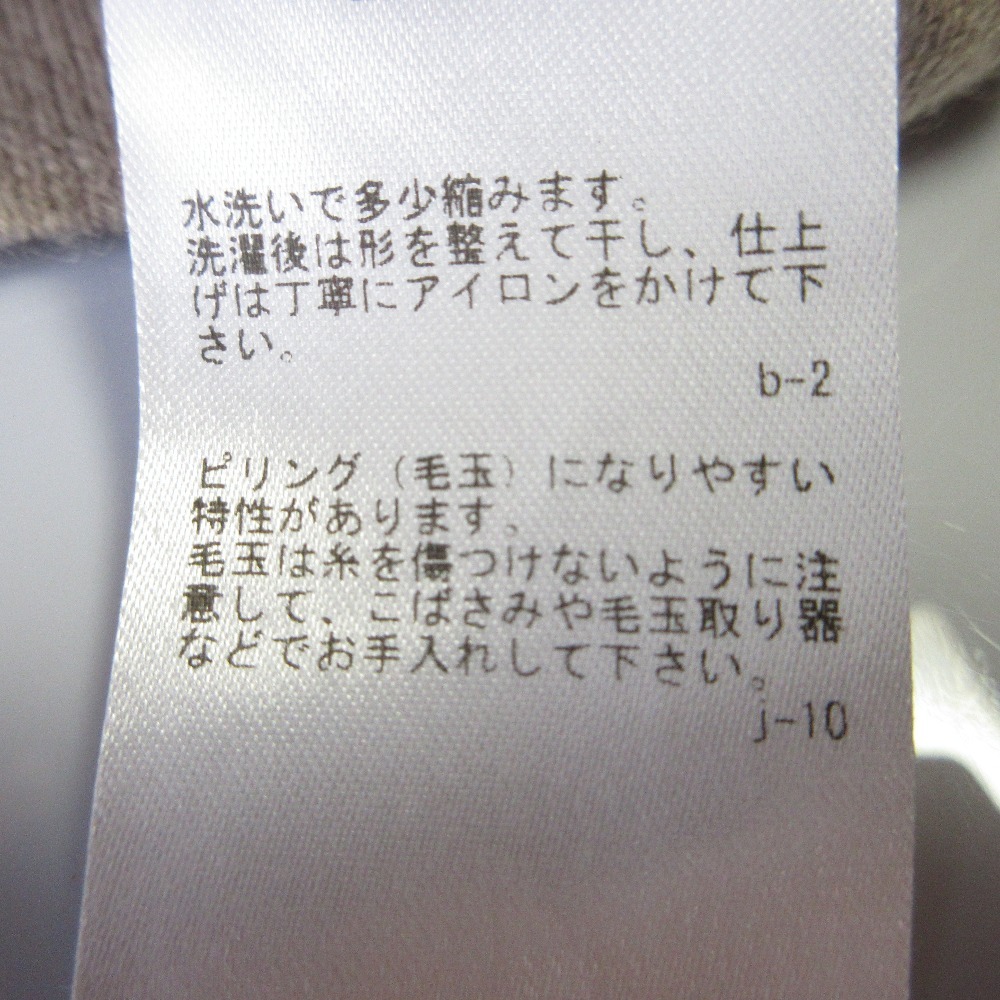 水洗いで多少縮みます。
洗濯後は形を整えて干し、仕上
げは丁寧にアイロンをかけて下
さい。
b-2
ピリング（毛玉）になりやすい
特性があります。
毛玉は糸を傷つけないように注
意して、こばさみや毛玉取り器
などでお手入れして下さい。
j-10